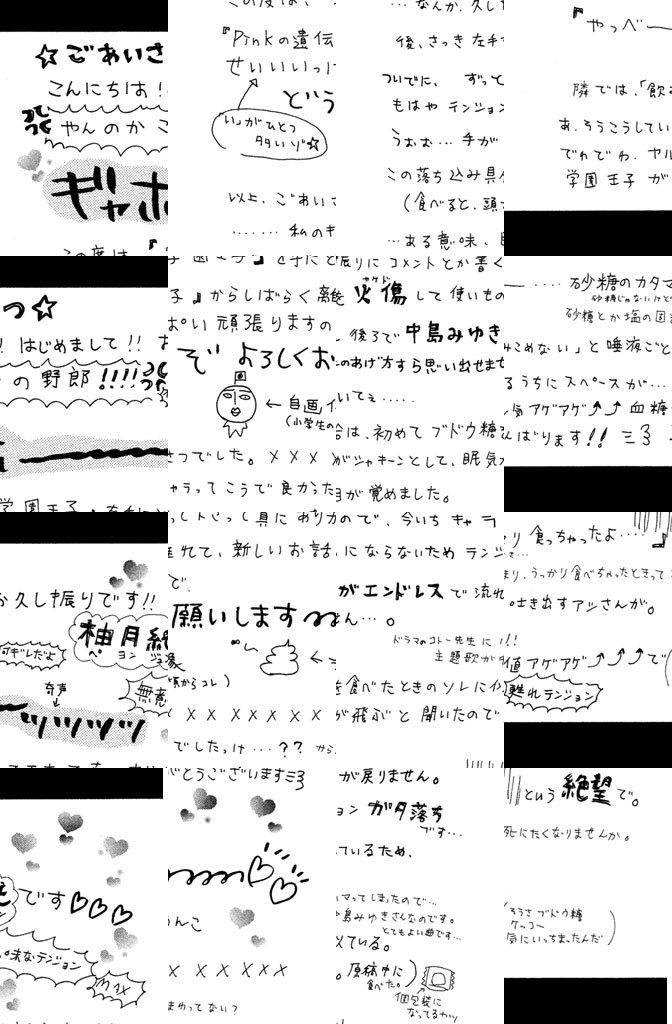 ☆ごあいさ
こんにちは!
やんのか こ
ギャホ
この度は、『
この度は、
『Pinkの遺伝
せいいいっぱ
どう
「い」がひとつ
多いゾ☆
以上、ごあいさ
……私のキ
…なんか、久し
後、さっき 左手
ついでに、ずっと
もはや テンション
うむむ… 手が
この落ち込み具合
(食べると、頭
…ある意味、
『やっべー
隣では、「飲み
あ、そうこうしてい
でわでわ、ヤル
学園王子 が
つ☆
! はじめまして!! お
の 野郎!!!!
学園王子
子』からしばらく離
ぱい 頑張りますの
ぞ よろしくお
← 自画
(小学生の
さつでした。×××
ャラってこうで 良かった
振りに コメントとか書く
火傷 して 使いもの
ヤケド
後ろで 中島みゆき
のあげ方すら思い出せませ
いてぇ……
は、初めて ブドウ糖
がシャキーンとして、眠気
が覚めました。
―……砂糖のカタマ
砂糖じゃないけど
砂糖とか塩の固
みこめない」と 唾液ごと
るうちに スペースが…
気 アゲアゲ↑↑ 血糖
んばります!! ミ3
お久し振りです!!
柚月純
ペ ヨン ジュ
何ギレだよ
奇声
↓
無意
ッッッッ
離れて、新しい お話
で、
願いします
←
頃からコレ)
××××××
でしたっけ…??
にならないため ランジ
がエンドレス で 流れ
ん…。
ドラマのコトー先生に
主題歌が
を食べたときの ソレに
が飛ぶ と 聞いたので
り 食っちゃったよ……』
まり、うっかり食べちゃったときって
吐き出すアシさんが。
値 アゲアゲ↑↑↑↑で
甦れ テンション
です♡♡♡
味なテンション
MAX
がとうございますミ3
うんこ
×××××
まわってない?
が戻りません。
ョン ガタ落ち
です…
ているため、
マってしまったので…
島みゆきさんなのです。
とてもよい曲です…
ている。
原稿中に
食べた。
↑
個包装に
なってるカンジ
という 絶望で。
死にたくなりませんか。
ブドウ糖
ケッコー
気にいっちまったんだ